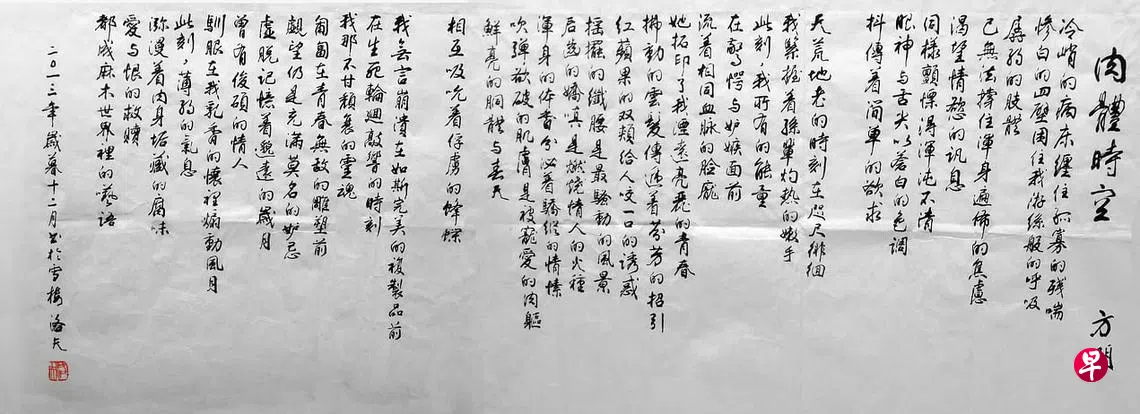 肉體時空
方明
冷峭的病床纏住孤寡的殘喘
慘白的四壁困住我游絲般的呼吸
孱弱的肢體
已無法撐住渾身遍佈的焦慮
渴望情慾的訊息
同樣顫慄得渾沌不清
眼神與舌尖以蒼白的色調
抖傳着简單的欲求
天荒地老的時刻在咫尺徘徊
我緊握着孫輩灼熱的嫩手
此刻，我所有的能量
在驚愕與妒嫉面前
流着相同血脉的臉龐
她拓印了我遙遠亮麗的青春
拂動的雲髮傳遞着芬芳的招引
红蘋果的双頰給人咬一口的诱惑
摇擺的纖腰是最騷動的風景
启齒的嬌嗔是燃燒情人的火種
渾身的体香分泌着驕縱的情愫
吹彈欲破的肌膚是被寵愛的肉軀
鮮亮的胴體與春天
相互吸吮着俘虜的蜂蝶
我無言崩潰在如斯完美的複製品前
在生死輪廻敲響的時刻
我那不甘頹衰的靈魂
匍匐在青春無敵的雕塑前
覷望仍是充滿莫名的妒忌
虛脫記憶着邈遠的歲月
曾有俊碩的情人
馴服在我乳香的懷裡煽動風月
此刻，薄弱的氣息
瀰漫着肉身垢藏的腐味
愛与恨的救贖
都成麻木世界裡的囈語
二〇一三年歲暮十二月書於雪樓 洛夫
早